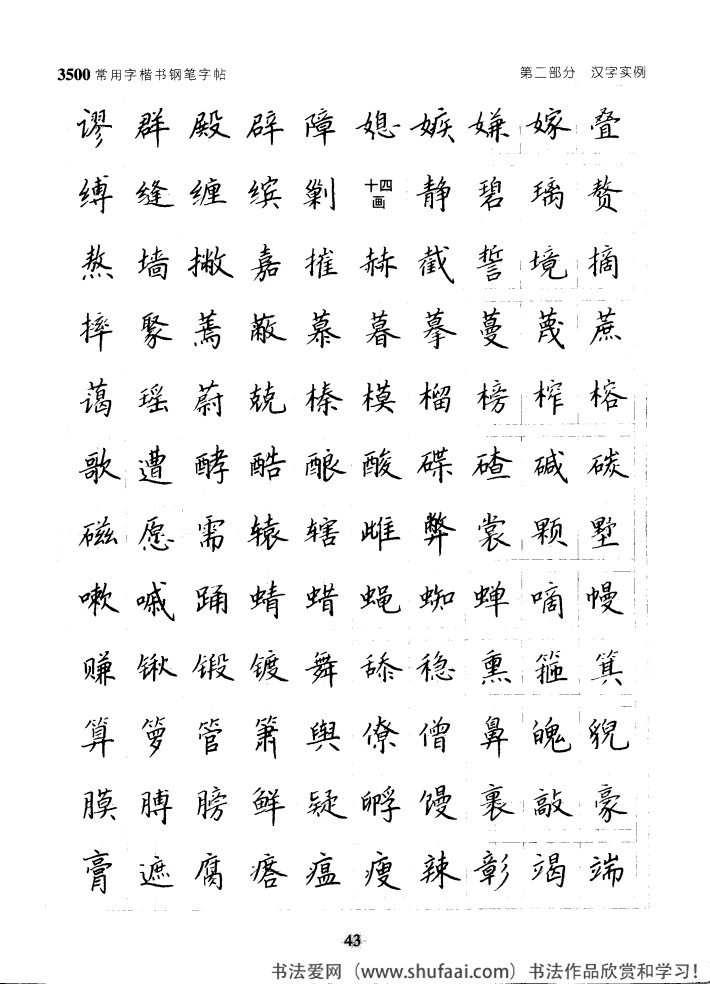 3500常用字楷书钢笔字帖 第二部分 汉字实例
谬群殿辟障媳嫉嫌嫁叠
缚缝缠缤剿十四画静碧璃赘
熬墙撇嘉摧赫截誓境摘
摔聚蔫蔽慕暮摹蔓蔑蔗
蔼瑶蔚兢榛模榴榜榨榕
歌遭酵酷酿酸碟碴碱碳
磁愿需辕辖雌弊裳颗墅
嗽嘁踊蜻蜡蝇蜘蝉嘀幔
赚锹锻镀舞舔稳熏箍箕
算箩管箫舆僚僧鼻魄貌
膜膊膀鲜疑孵馒裹敲豪
膏遮腐瘩瘟瘦辣彰竭端
43
书法爱网（www.shufaai.com）书法作品欣赏和学习！